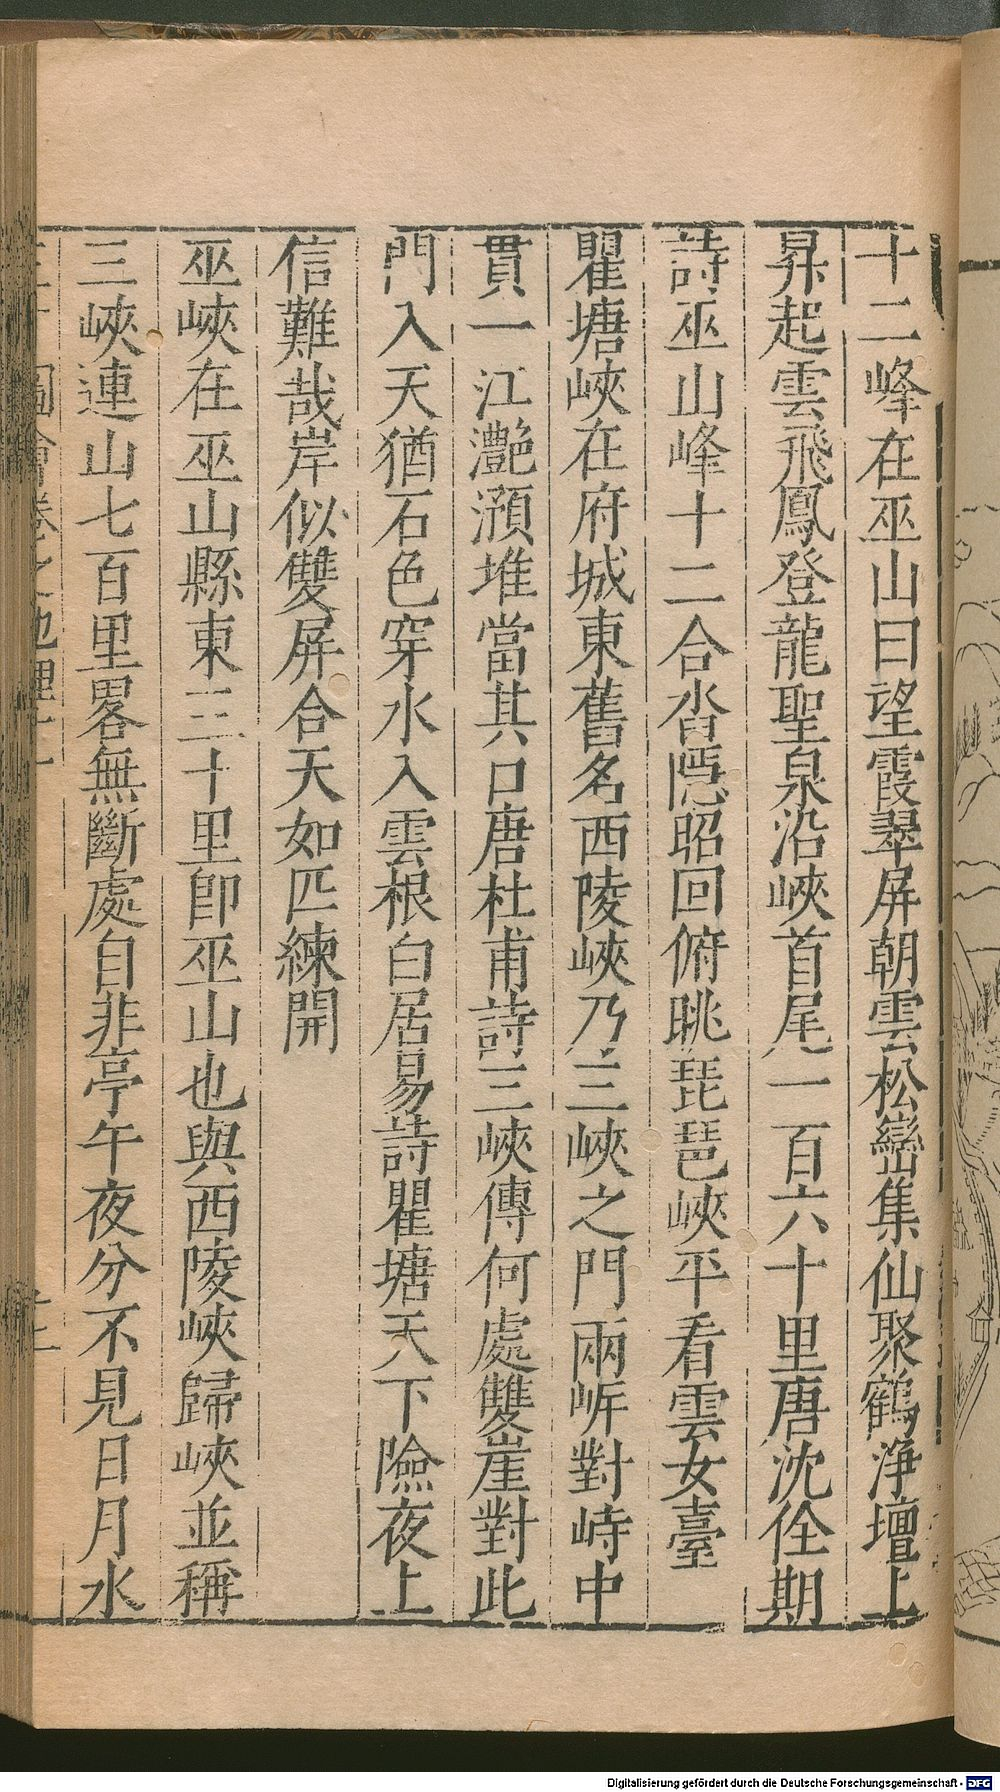 十二峰在巫山曰望霞翠屏朝雲松巒集仙聚鶴淨壇上
昇起雲飛鳳登龍聖泉沿峽首尾一百六十里唐沈佺期
詩巫山峰十二合沓隱昭回俯眺琵琶峽平看雲女臺
瞿塘峽在府城東舊名西陵峽乃三峽之門兩岸對峙中
貫一江灔澦堆當其口唐杜甫詩三峽傳何處雙崖對此
門入天猶石色穿水入雲根白居易詩瞿塘天下險夜上
信難哉岸似雙屏合天如匹練開
巫峽在巫山縣東三十里卽巫山也與西陵峽歸峽並稱
三峽連山七百里畧無斷處自非亭午夜分不見日月水
圖會卷之地理十
Digitalisierung gefördert durch die Deutsche Forschungsgemeinschaft - DFG